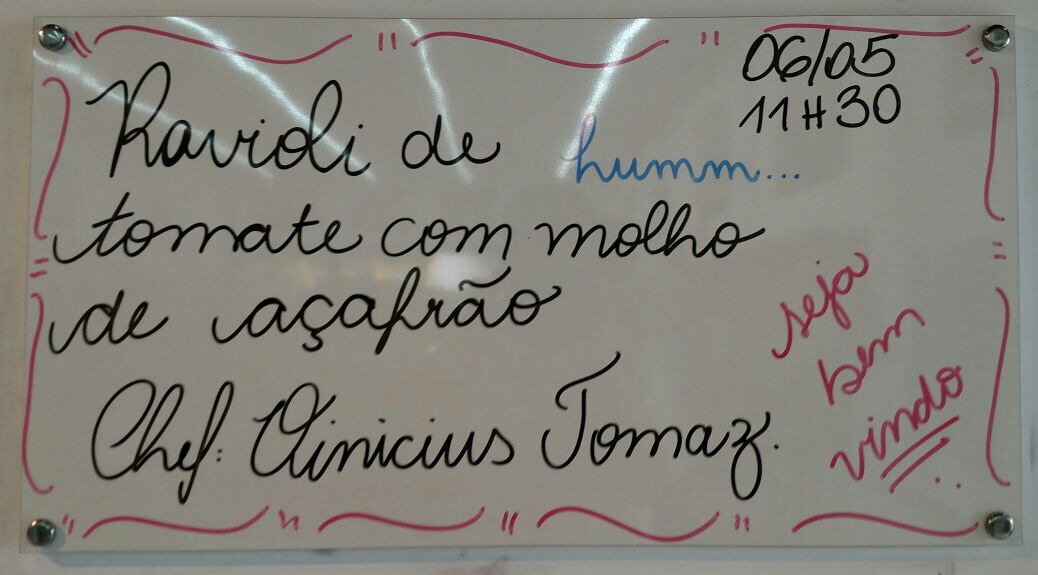 06/05
11H30
Ravioli de humm...
tomate com molho
de açafrão
Chef: Vinicius Tomaz.
seja
bem
vindo